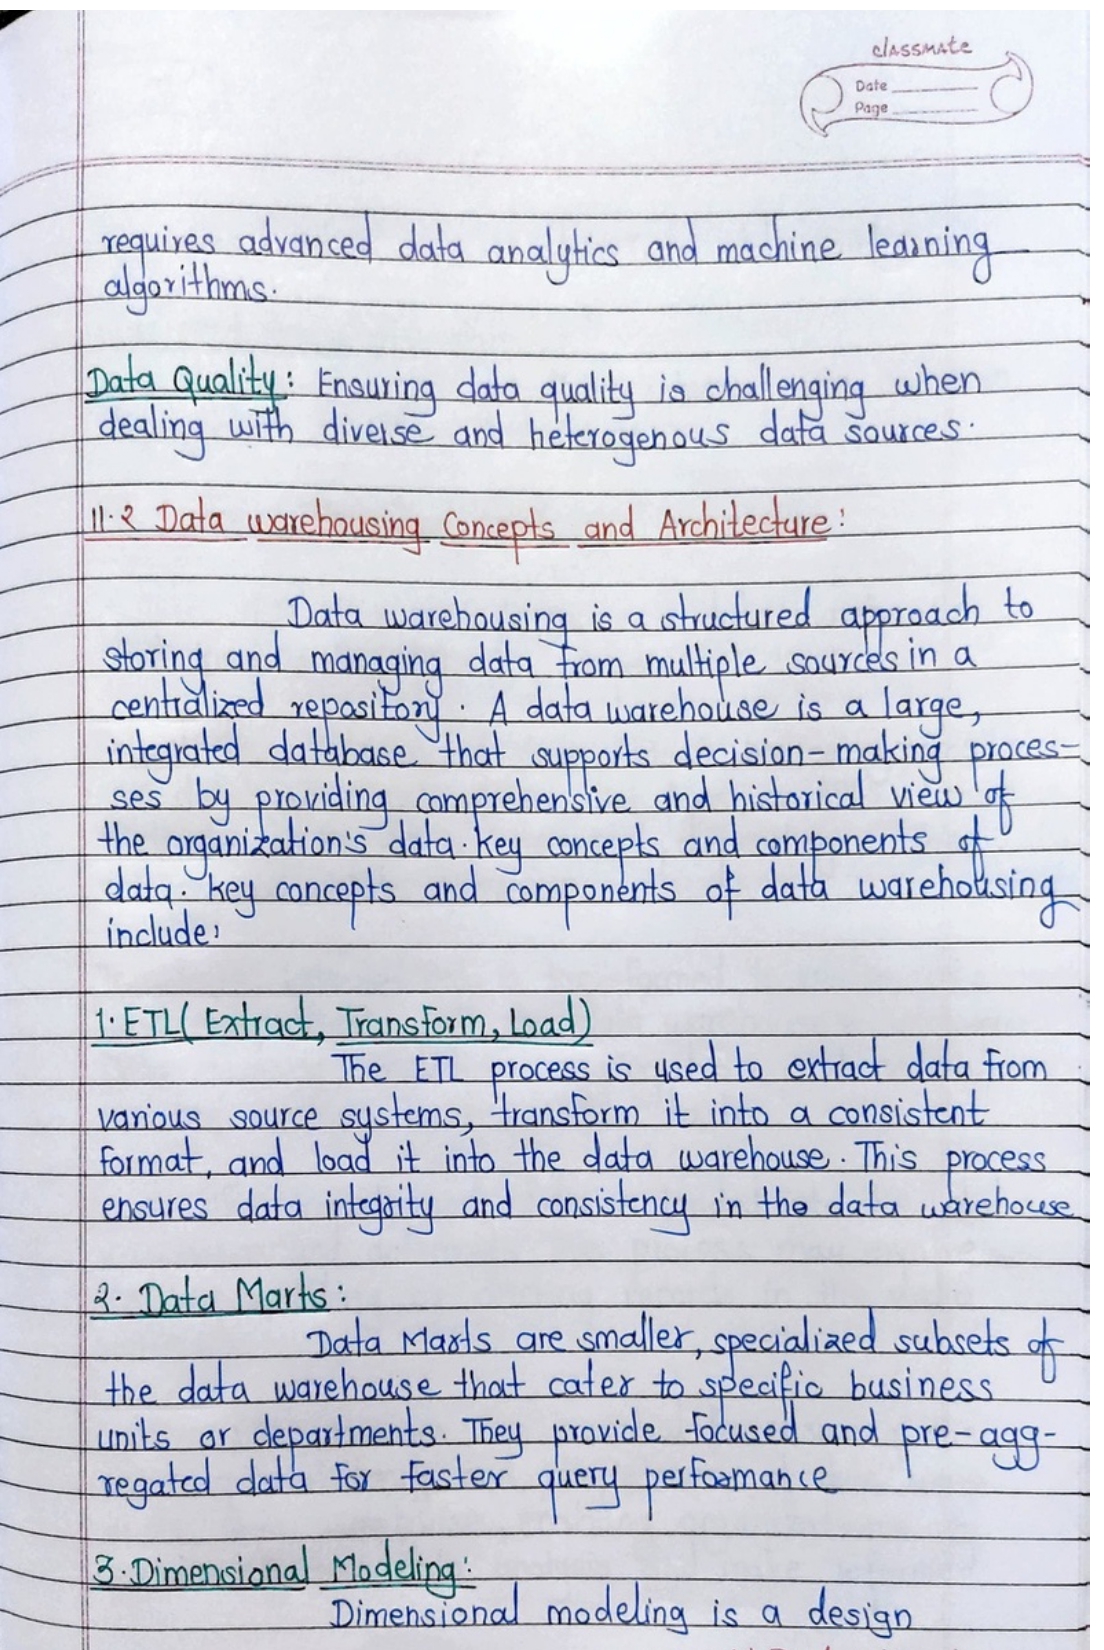 classmate
Date
Page
requires advanced data analytics and machine learning
algorithms.
Data Quality: Ensuring data quality is challenging when
dealing with diverse and heterogenous data sources.
11.2 Data warehousing Concepts and Architecture:
Data warehousing is a structured approach to
storing and managing data from multiple sources in a
centralized repository. A data warehouse is a large,
integrated database that supports decision-making proces-
ses by providing comprehensive and historical view of
the organization's data. Key concepts and components of
data. Key concepts and components of data warehousing
include:
1. ETL (Extract, Transform, Load)
The ETL process is used to extract data from
various source systems, transform it into a consistent
format, and load it into the data warehouse. This process
ensures data integrity and consistency in the data warehouse
2. Data Marts:
Data Marts are smaller, specialized subsets of
the data warehouse that cater to specific business
units or departments. They provide focused and pre-agg-
regated data for faster query performance
3. Dimensional Modeling:
Dimensional modeling is a design